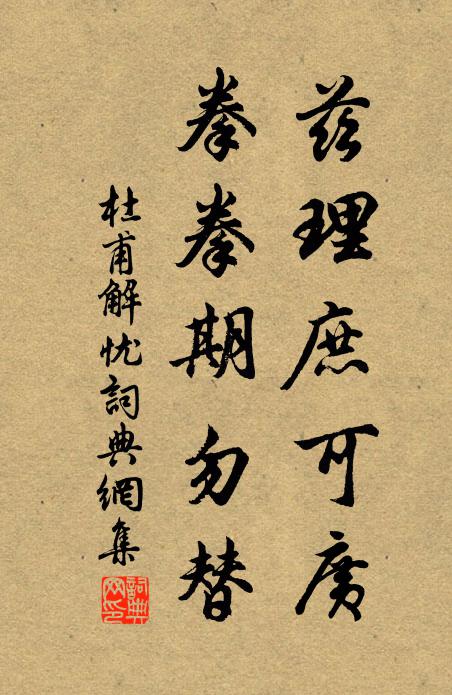 茲理庶可廣
拳拳期勿替
杜甫解忧詞典網集
詞典网印